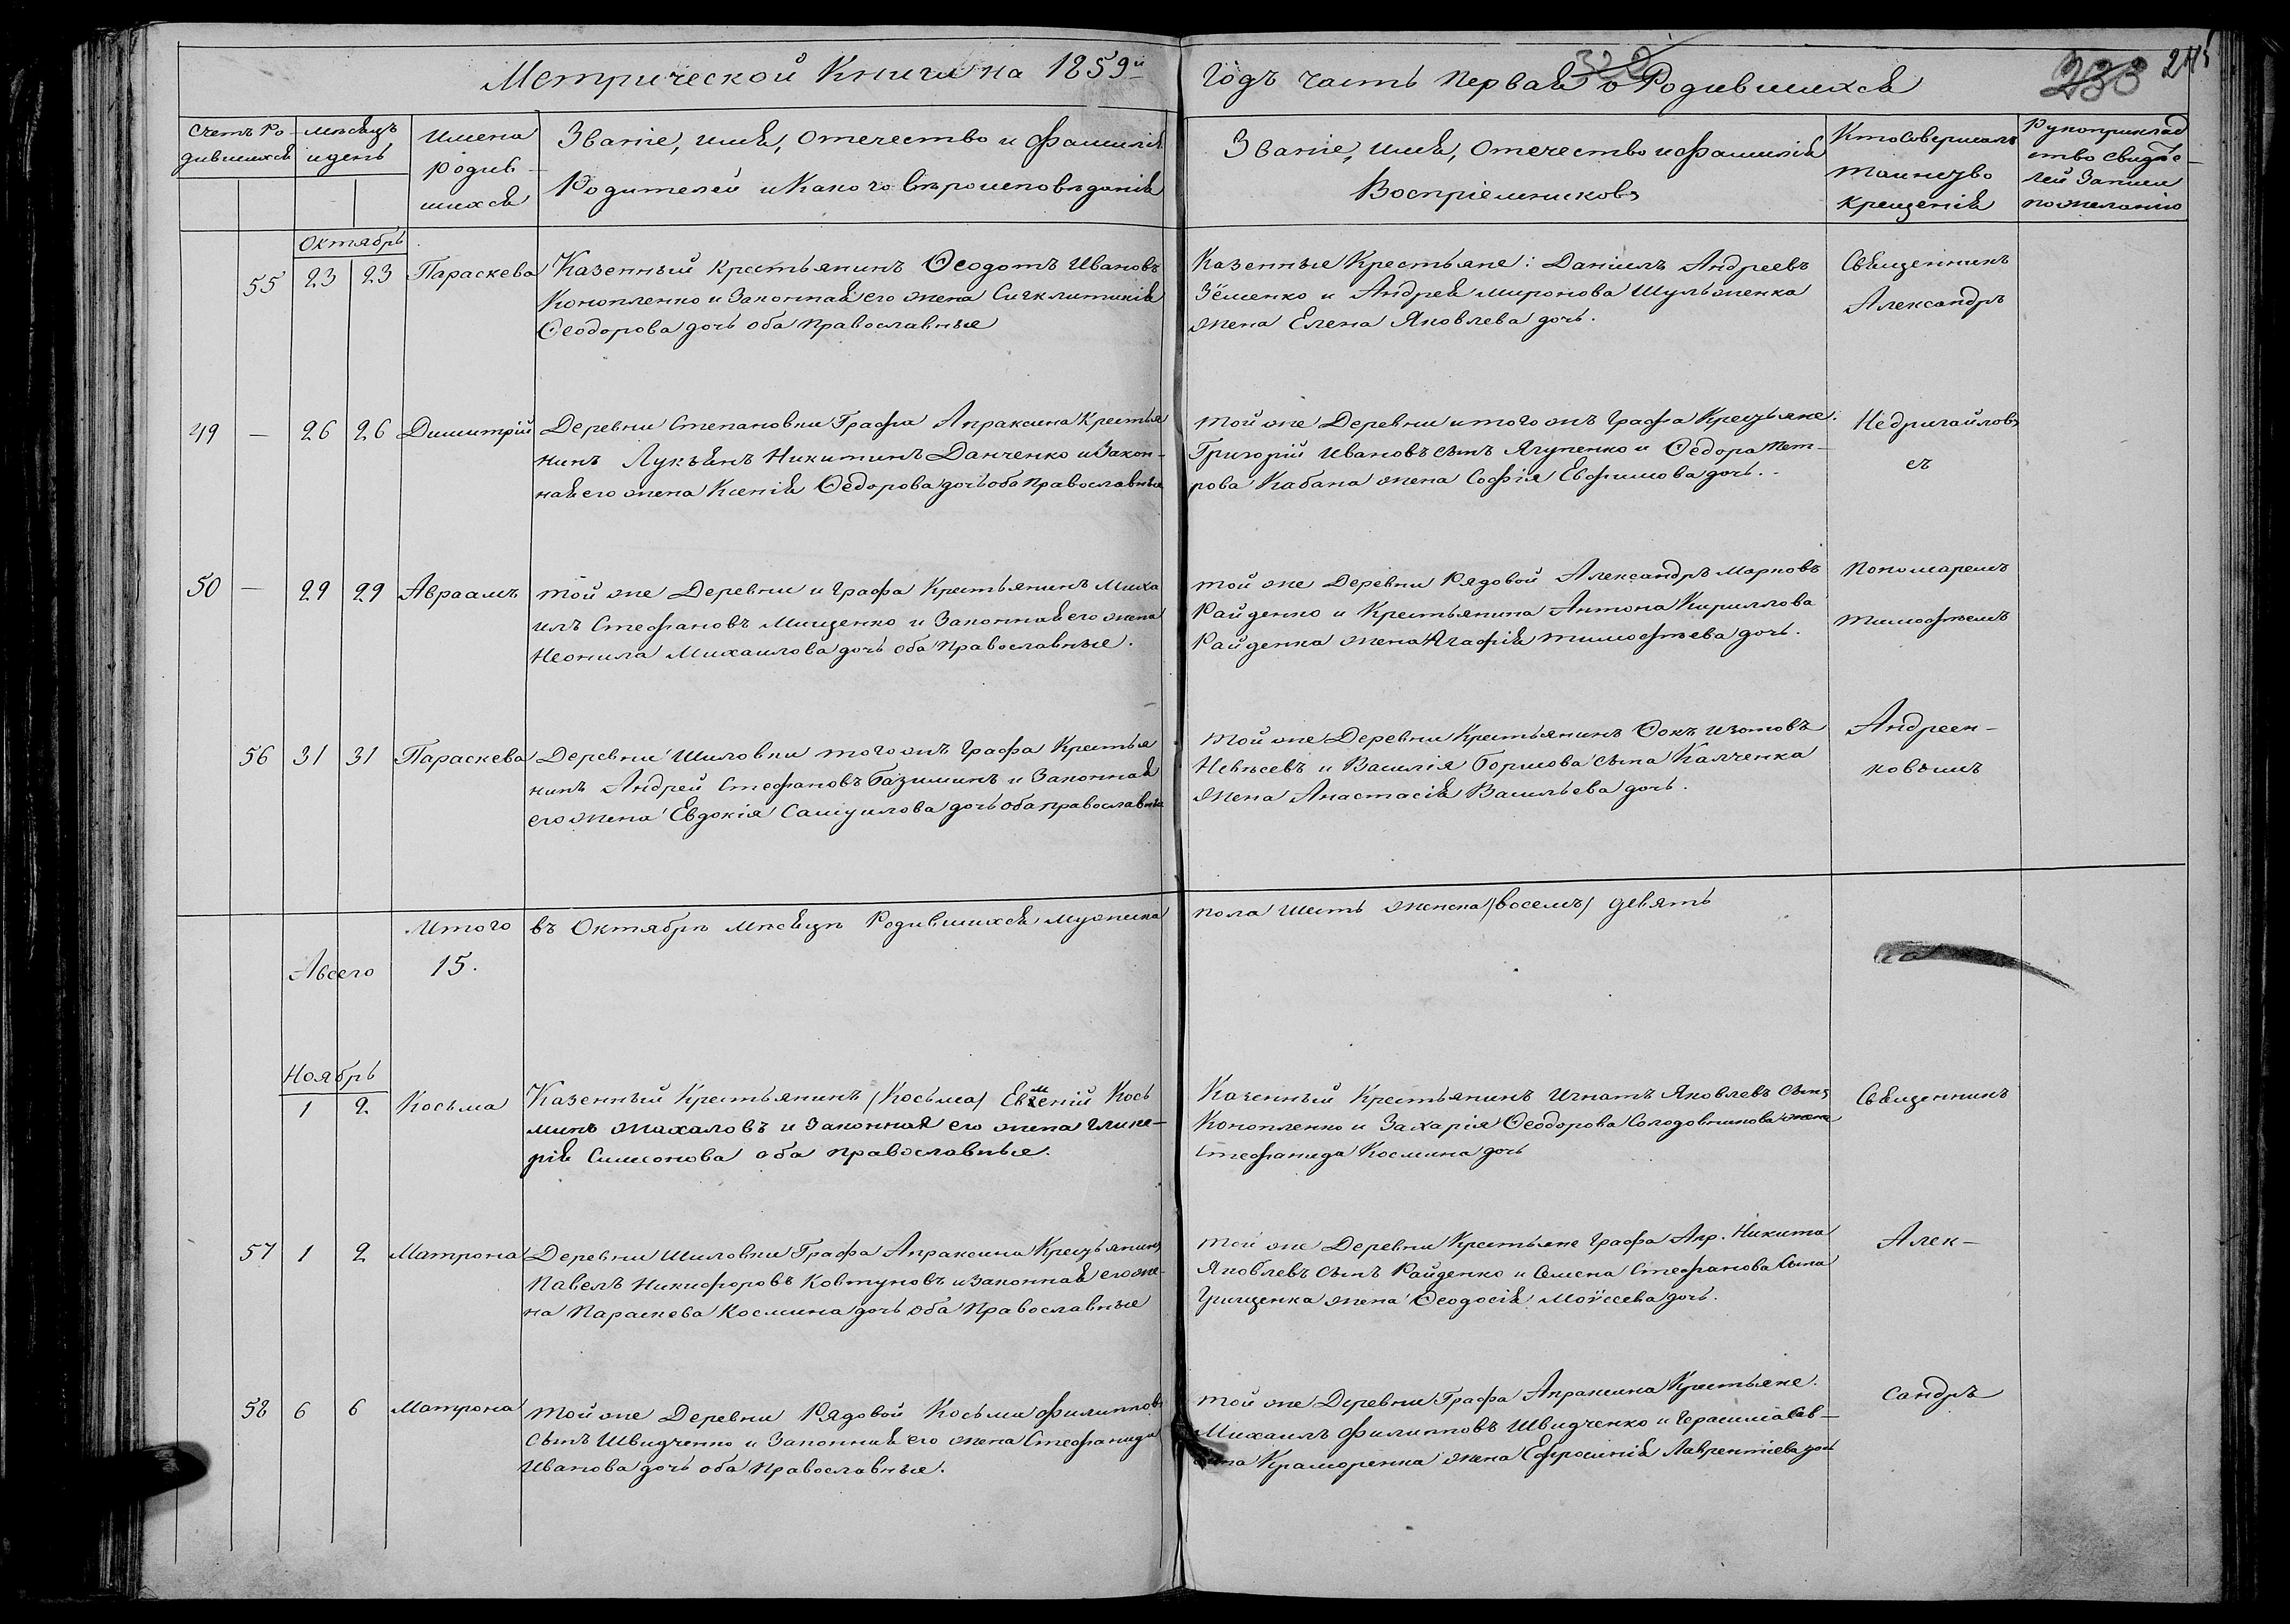 Метрической Книги на 1859й
Годъ часть первая о Родившихся
322
233
Счетъ Ро-
дившихся
мѣсяцъ
и день
Имена
родив-
шихся
Званіе, имя, отечество и фамилія
Родителей и Какого вѣроисповѣданія
Званіе, имя, отечество и фамилія
Воспріемниковъ
Кто Совершалъ
таинство
крещенія
Рукоприклад
ство свидѣте-
лей Записи
по желанію
Октябрь
55 23 23 Параскева
Казенный крестьянинъ Ѳеодотъ Ивановъ
Конопленко и Законная его жена Сигклитикія
Ѳеодорова дочь оба православные
Казенные Крестьяне: Даніилъ Андреевъ
Зёменко и Андрея Миронова Шульженка
жена Елена Яковлева дочь.
Священникъ
Александръ
49 — 26 26 Димитрій
Деревни Степановки Графа Апраксина Крестья
нинъ Лукьянъ Никитинъ Данченко и Закон-
ная его жена Ксенія Ѳедорова дочь оба православные
той же Деревни и того жъ Графа Крестьяне:
Григорій Ивановъ сынъ Ягупенко и Ѳедора Пет-
рова Кабана жена Софія Евфимова дочь.
Недригайловъ
съ
50 — 29 29 Авраамъ
той же Деревни и Графа Крестьянинъ Миха
илъ Стефановъ Мищенко и Законная его жена
Неонила Михаилова дочь оба православные.
той же Деревни Рядовой Александръ Марковъ
Райденко и Крестьянина Антона Кириллова
Райденка жена Агафія Тимофѣева дочь.
Пономаремъ
Тимофѣемъ
56 31 31 Параскева
Деревни Шиловки того жъ Графа Крестья
нинъ Андрей Стефановъ Базиминъ и Законная
его жена Евдокія Самуилова дочь оба православные
той же Деревни Крестьянинъ Ѳока Изотовъ
Невѣсевъ и Василія Борисова сына Калченка
жена Анастасія Васильева дочь.
Андреен-
ковымъ
Итого въ Октябрѣ мѣсяцѣ Родившихся мужеска
пола шесть женска (восемъ) девять
Авсего 15.
Ноябрь
1 2 Косьма
Казенный Крестьянинъ (Косьма) Евменій Кось
минъ Жахаловъ и Законная его жена Глике-
рія Симеонова оба православные.
Казенный Крестьянинъ Игнатъ Яковлевъ сынъ
Конопленко и Захарія Ѳеодорова Солодовникова жена
Стефанида Космина дочь
Священникъ
57 1 2 Матрона
Деревни Шиловки Графа Апраксина Крестьянинъ
Павелъ Никифоровъ Ковтуновъ и законная его же-
на Параскева Космина дочь оба Православные
той же Деревни Крестьяне Графа Апр. Никита
Яковлевъ сынъ Райденко и Семена Стефанова Сына
Грищенка жена Ѳеодосія Моѵсеева дочь.
Алек-
58 6 6 Матрона
той же Деревни Рядовой Косьма Филипповъ
сынъ Швидченко и Законная его жена Стефанида
Иванова дочь оба Православные.
той же Деревни Графа Апраксина Крестьяне.
Михаилъ Филипповъ Швидченко и Герасима Сав-
Краморенка жена Ефросинія Лаврентіева дочь
сандръ